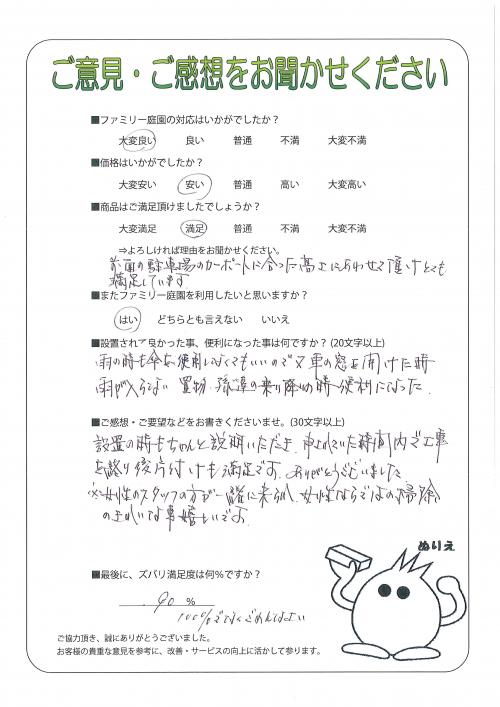 ご意見・ご感想をお聞かせください
■ファミリー庭園の対応はいかがでしたか？
大変良い 良い 普通 不満 大変不満
■価格はいかがでしたか？
大変安い 安い 普通 高い 大変高い
■商品はご満足頂けましたでしょうか？
大変満足 満足 普通 不満 大変不満
⇒よろしければ理由をお聞かせください。
前面の駐車場のカーポートに合った高さにあわせて頂けとても
満足しています
■またファミリー庭園を利用したいと思いますか？
はい どちらとも言えない いいえ
■設置されて良かった事、便利になった事は何ですか？(20文字以上)
雨の時も傘を使用しなくてもいいので又車の窓を開けた時
雨が入らない 荷物 孫達の乗り降りの時便利になった
■ご感想・ご要望などをお書きくださいませ。(30文字以上)
設置の時もちゃんと説明いただき、申されていた時間内で工事
を終り後片付けも満足です。ありがとうございました
※女性のスタッフの方が一緒に来られ、女性ならではの掃除
のきれいな事嬉しいです
ぬりえ
■最後に、ズバリ満足度は何%ですか？
90 %
100%でなくごめんなさい
ご協力頂き、誠にありがとうございました。
お客様の貴重な意見を参考に、改善・サービスの向上に活かして参ります。